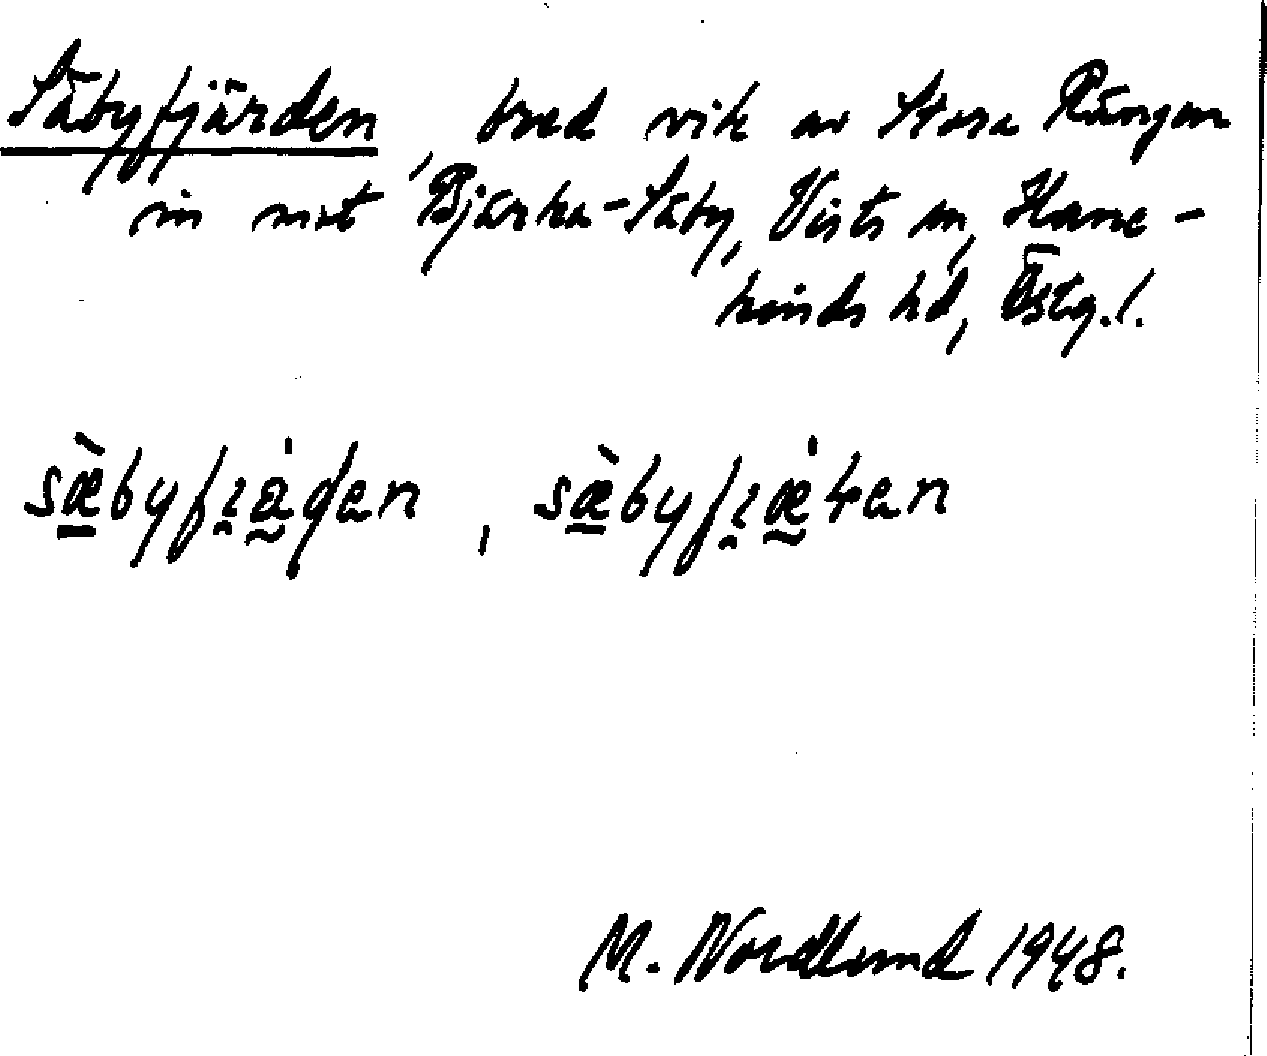 Säbyfjärden, bred vik av Stora Rängen
in mot Bjärka-Säby, Vists sn, Hane-
kinds hd, Östg.l.
sæ̀byfɪ̯a̍ɖen, sæ̀byfɪ̯æ̍ɽen
M. Nordlund 1948.